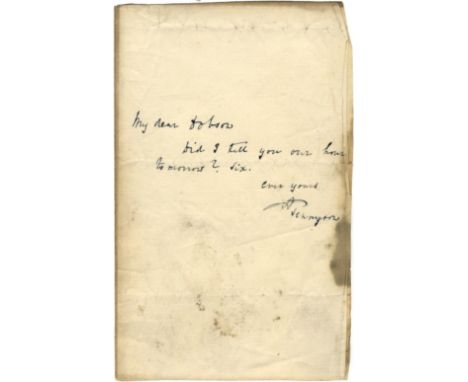 My dear Dobson
Did I tell you our hour
tomorrow? Six.
Ever yours
A Tennyson